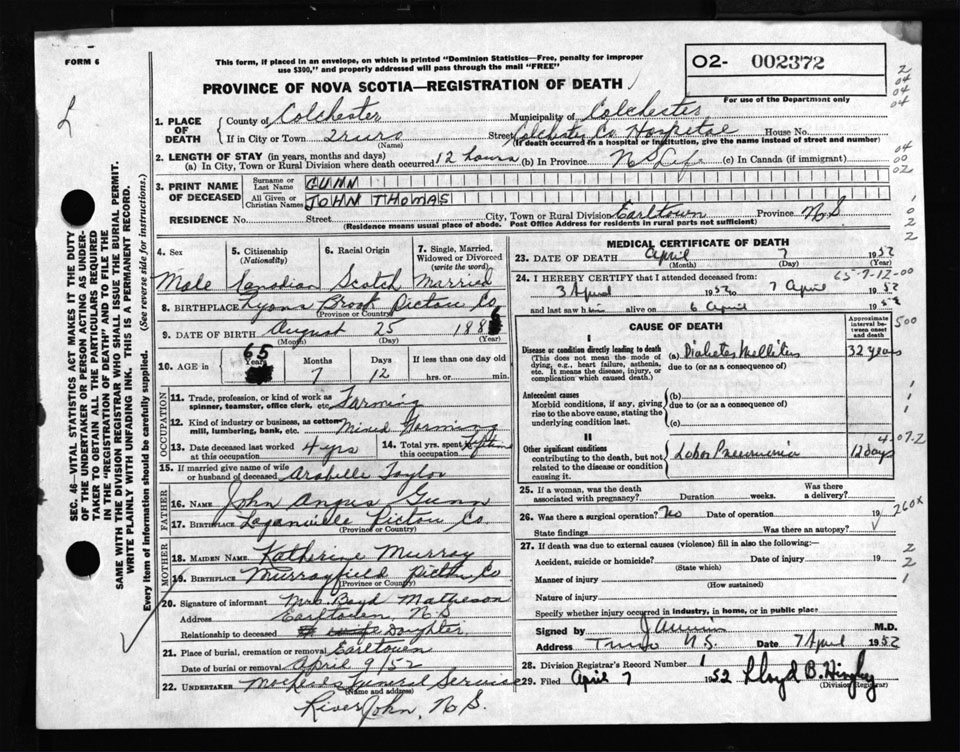 FORM 6
This form, if placed in an envelope, on which is printed "Dominion Statistics—Free, penalty for improper
use $300," and properly addressed will pass through the mail "FREE"
O2- 002372
For use of the Department only
PROVINCE OF NOVA SCOTIA—REGISTRATION OF DEATH
2
04
04
04
1. PLACE OF DEATH
County of Colchester Municipality of Colchester
If in City or Town Truro Street Colchester Co. Hospital House No.
(Name) (If death occurred in a hospital or institution, give the name instead of street and number)
2. LENGTH OF STAY (in years, months and days)
(a) In City, Town or Rural Division where death occurred 12 hours (b) In Province N S Life (c) In Canada (if immigrant)
04
00
02
3. PRINT NAME OF DECEASED
Surname or Last Name GUNN
All Given or Christian Names JOHN THOMAS
RESIDENCE No. Street City, Town or Rural Division Earltown Province N S
(Residence means usual place of abode. Post Office Address for residents in rural parts not sufficient)
1
0
2
2
SEC. 46—VITAL STATISTICS ACT MAKES IT THE DUTY
OF THE UNDERTAKER OR PERSON ACTING AS UNDER-
TAKER TO OBTAIN ALL THE PARTICULARS REQUIRED
IN THE "REGISTRATION OF DEATH" AND TO FILE THE
SAME WITH THE DIVISION REGISTRAR WHO SHALL ISSUE THE BURIAL PERMIT.
WRITE PLAINLY WITH UNFADING INK. THIS IS A PERMANENT RECORD.
Every item of Information should be carefully supplied. (See reverse side for instructions.)
4. Sex 5. Citizenship (Nationality) 6. Racial Origin 7. Single, Married, Widowed or Divorced (write the word)
Male Canadian Scotch Married
8. BIRTHPLACE Lyons Brook Pictou Co
(Province or Country)
9. DATE OF BIRTH August 25 1886
(Month) (Day) (Year)
10. AGE in 65 Years 7 Months 12 Days If less than one day old hrs. or min.
OCCUPATION
11. Trade, profession, or kind of work as spinner, teamster, office clerk, etc. Farming
12. Kind of industry or business, as cotton mill, lumbering, bank, etc. Mixed Farming
13. Date deceased last worked at this occupation 4 yrs 14. Total yrs. spent in this occupation
15. If married give name of wife or husband of deceased Arabelle Taylor
FATHER
16. NAME John Angus Gunn
17. BIRTHPLACE Loganville Pictou Co.
(Province or Country)
MOTHER
18. MAIDEN NAME Katherine Murray
19. BIRTHPLACE Murrayfield Pictou Co
(Province or Country)
20. Signature of informant Mrs. Boyd Matheson
Address Earltown, N.S
Relationship to deceased Daughter.
21. Place of burial, cremation or removal Earltown
Date of burial or removal April 9/52
22. UNDERTAKER Funeral Service
(Name and address)
River John, N.S.
MEDICAL CERTIFICATE OF DEATH
23. DATE OF DEATH April 7 1952
(Month) (Day) (Year)
65-7-12-00
24. I HEREBY CERTIFY that I attended deceased from:
3 April 1952 to 7 April 1952
and last saw him alive on 6 April 1952
CAUSE OF DEATH
Approximate interval between onset and death
500
I
Disease or condition directly leading to death (a) Diabetes Mellitus 32 years
(This does not mean the mode of dying, e.g., heart failure, asthenia, etc. It means the disease, injury, or complication which caused death.)
due to (or as a consequence of)
Antecedent causes (b)
Morbid conditions, if any, giving rise to the above cause, stating the underlying condition last.
due to (or as a consequence of)
(c)
1
1
1
II
4-07-2
Other significant conditions Lobar Pneumonia 12 days
contributing to the death, but not related to the disease or condition causing it.
25. If a woman, was the death associated with pregnancy? Duration weeks. Was there a delivery?
26. Was there a surgical operation? No Date of operation 19
260X
State findings Was there an autopsy?
27. If death was due to external causes (violence) fill in also the following:—
Accident, suicide or homicide? Date of injury 19
(State which)
Manner of injury
(How sustained)
Nature of injury
Specify whether injury occurred in industry, in home, or in public place
2
2
1
Signed by M.D.
Address Truro N.S. Date 7 April 1952
28. Division Registrar's Record Number 1
29. Filed April 7 1952 Lloyd B. Hingley
(Division Registrar)